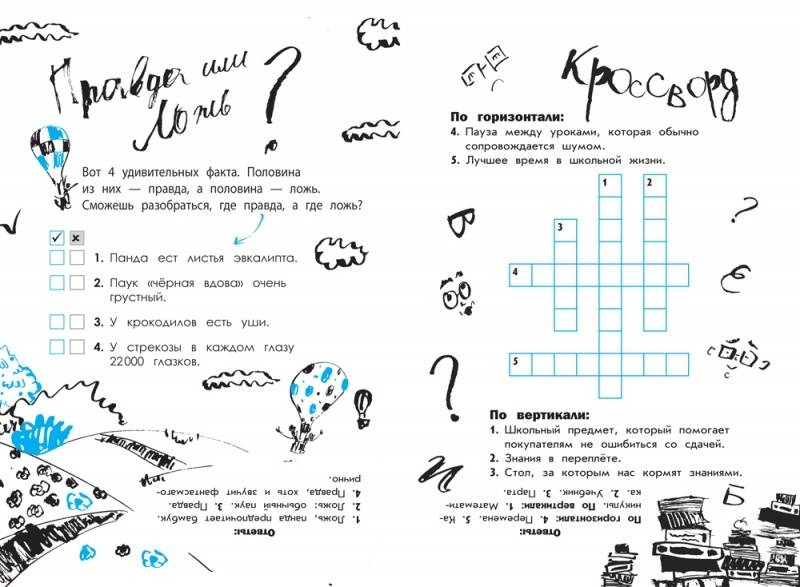 Правда или
Ложь ?
Вот 4 удивительных факта. Половина
из них — правда, а половина — ложь.
Сможешь разобраться, где правда, а где ложь?
1. Панда ест листья эвкалипта.
2. Паук «чёрная вдова» очень
грустный.
3. У крокодилов есть уши.
4. У стрекозы в каждом глазу
22000 глазков.
Ответы:
1. Ложь, панда предпочитает бамбук.
2. Ложь: обычный паук. 3. Правда.
4. Правда, хоть и звучит фантасма-
рично.
Кроссворд
По горизонтали:
4. Пауза между уроками, которая обычно
сопровождается шумом.
5. Лучшее время в школьной жизни.
1
2
3
4
5
По вертикали:
1. Школьный предмет, который помогает
покупателям не ошибиться со сдачей.
2. Знания в переплёте.
3. Стол, за которым нас кормят знаниями.
Ответы:
По горизонтали: 4. Перемена. 5. Ка-
никулы. По вертикали: 1. Математи-
ка. 2. Учебник. 3. Парта.
В
?
Е
?
И
Б